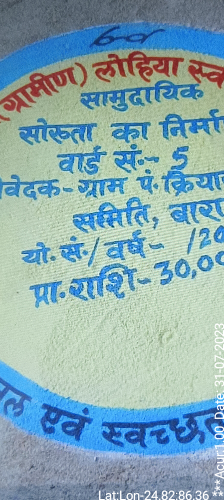 ग्रामीण) लोहिया स्व
सामुदायिक
सोख्ता का निर्मा
वार्ड सं.- 5
वेदक- ग्राम पं. क्रिया
समिति, बारा
यो. सं./ वर्ष- /20
प्रा. राशि- 30,00
एवं स्वच्छत
Lat:Lon-24.82:86.36
Acur:1.00 Date: 31-07-2023